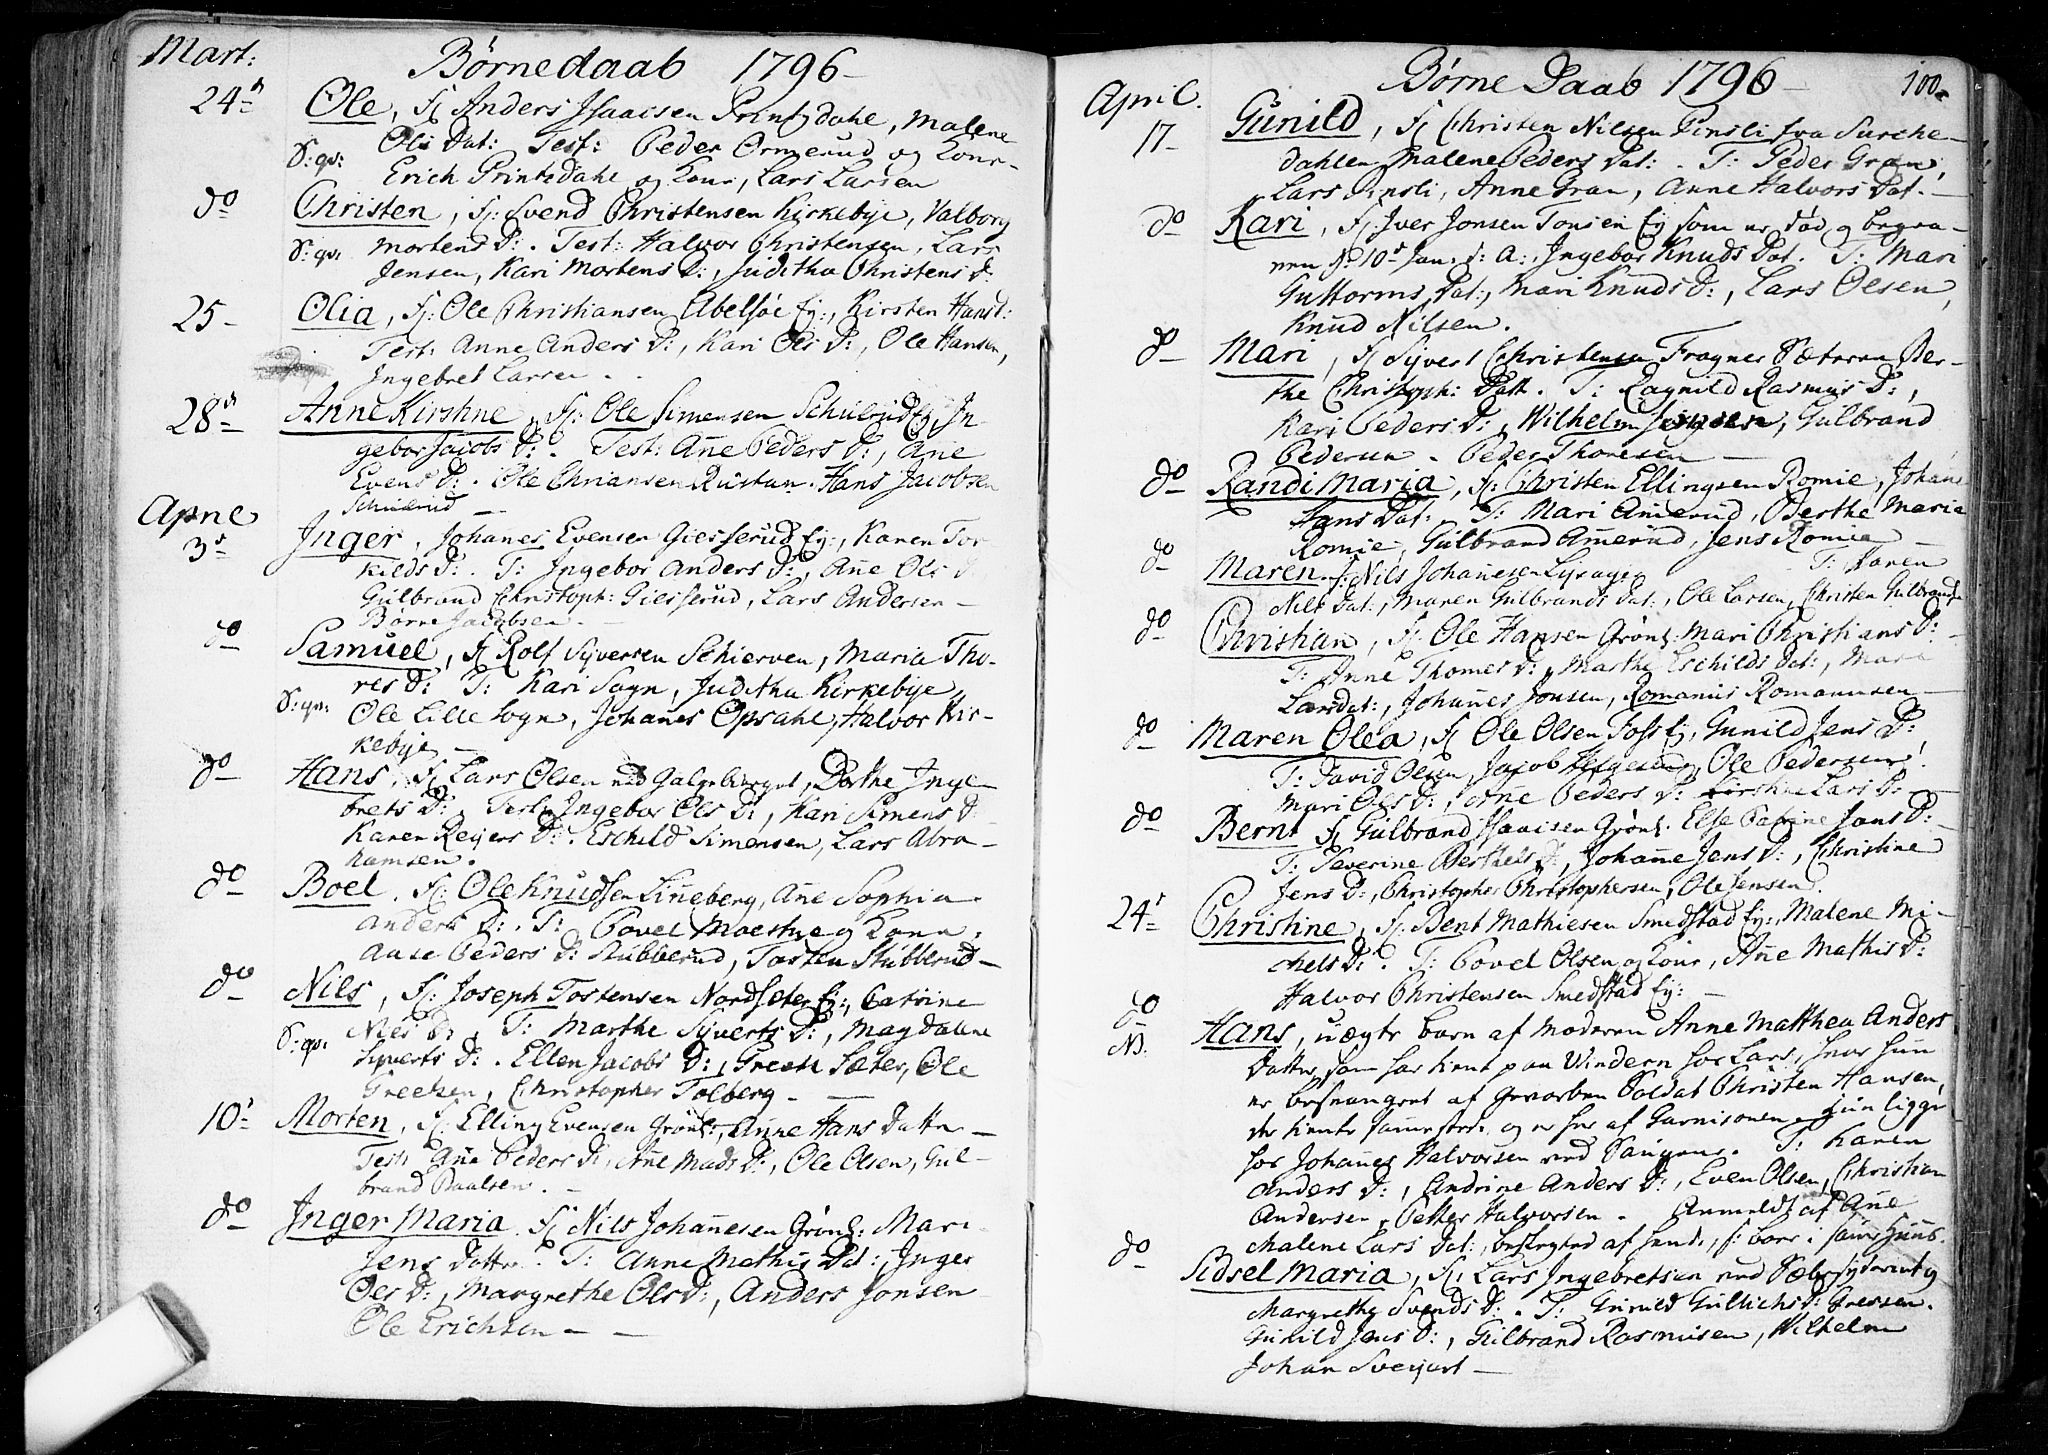 Mart: Børnedaab 1796
24de Ole, F: Anders Isaacsen Printzdahl, Malene
S: qv: Ols Dat: Test: Peder Ormerud og Kone
Erich Printzdahl og Kone, Lars Larsen
do Christen, F: Svend Christensen Kirkebye, Valborg
S: qv: Mortens D: Test: Halvor Christensen, Lars
Jensen, Kari Mortens D:, Juditha Christens D:
25 Olia, F: Ole Christiansen Abelsøe Ey:, Kirsten Hans D:
Test: Anne Anders D:, Kari Ols D:, Ole Hansen,
Ingebret Larsen
28de Anne Kirstine, F: Ole Simensen Schulrud Ey, In-
gebor Jacobs D: Test: Añe Peders D:, Añe
Evens D:. Ole Chriansen Rustan. Hans Jacobsen
Schulerud
April
3de Inger, Johañes Evensen Giesserud Ey:, Karen Tor
kilds D:. T: Ingebor Anders D:, Añe Ols D
Gulbrand Christoph: Giesserud, Lars Andersen
Børre Jacobsen
do Samuel, F: Rolf Syversen Schierven, Maria Tho-
res D: T: Kari Sogn, Juditha Kirkebye
S: qv: Ole Lille Sogn, Johañes Opsahl, Halvor Kir-
kebye
do Hans, F: Lars Olsen ved Galgeberget, Dorthe Inge
brets D:, Test: Ingebor Ols D:, Kari Simens D:
Karen Reyers D:. Eschild Simensen, Lars Abra-
hamsen.
do Boel, F: Ole Knudsen Liñeberg, Añe Sophia
Anders D:. T: Povel Moestue og Kone,
Aase Peders D: Stubberud, Tosten Stubberud
do Nils, F: Joseph Tostensen Nordseter Ey:, Catrine
S: qv: Nils D:, T: Marthe Syverts D:, Magdalene
Syverts D:. Ellen Jacobs D:, Greete Sæter, Ole
Greetsen, Christopher Tolberg
10de Morten, F: Elling Evensen Grønl:, Anne Hans Datter
Test: Añe Peders D:, Añe Mads D:, Ole Olsen, Gul-
brand Paalsen.
do Inger Maria, F: Nils Johañesen Grønl: Mari
Jens Datter. T: Anne Mathis Dat:, Inger
Ols D:, Margrethe Ols D:, Anders Jonsen
Ole Erichsen
April. Børne Daab 1796 100
17 Gunild, F: Christen Nilsen Pinsli fra Surche-
dahlen Malene Peders Dat:. T: Peder Gran,
Lars Pinsli, Anne Gran, Anne Halvors Dat.
do Kari, F: Iver Jonsen Tonsen Ey som er død og begra-
ven d: 10de Jan: d: A:, Ingebor Knuds Dat. T: Mari
Guttorms Dat:, Mari Knuds D:, Lars Olsen,
Knud Nilsen.
do Mari, F: Syvert Christensen Frogner Sæteren Ber-
the Christoph: Datt. T: Ragnild Rasmus D:,
Kari Peders D:, Wilhelm, Gulbrand
Pedersen. Peder Thoresen
do Randi Maria, F: Christen Ellingsen Romie, Johañe
Hans Dat:. T: Mari Amerud, Berthe Maria
Romie, Gulbrand Amerud, Jens Romie
do Maren F: Nils Johañesen Lysager T: Karen
Nils Dat:, Maren Gulbrands Dat:, Ole Larsen, Christen Gulbrands
do Christian, F: Ole Hansen Grønl: Mari Christians D:
T: Anne Thomes D:, Marthe Eschilds Dat:, Mari
Larsdat:, Johañes Jonsen, Romanus Romanussen
do Maren Olea, F: Ole Olsen Foss Ey, Gunild Jens D:
T: David Olsen, Jacob Helgesen, Ole Pedersen,
Mari Ols D:, Añe Peders D: Kirstine Lars D:
do Bernt F: Gulbrand Isaacsen Grønl. Else Catrine Jans D:
T: Severine Berthels D:, Johañe Jens D:, Christine
Jens D:, Christopher Christophersen, Ole Jensen.
24de Christine, F: Bent Mathiesen Smedstad Ey:, Malene Mi-
chels D:. T: Povel Olsen og Kone, Añe Mathis D:
Halvor Christensen Smedstad Ey:
do Hans, uægte barn af Moderen Anne Matthea Anders
NB. Datter, som har tient paa Vindern hos Lars, hvor hun
er besvangret af gevorben Soldat Christen Hansen,
der tiente samesteds og er her af Garnisonen. Hun ligger
hos Johañes Halvorsen ved Saugene. T: Karen
Anders D:, Andrine Anders D:, Even Olsen, Christian
Andersen, Petter Halvorsen. Anmeldt af Añe
Malene Lars Dat:
do Sidsel Maria, F: Lars Ingebretsen ved og
Margrethe Svends D:. T: Gunild Gullichs D: Gressen.
Gunild Jens D:, Gulbrand Rasmusen, Wilhelm
Johan Sveijart